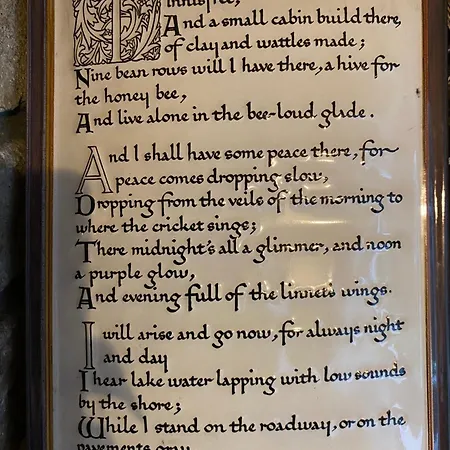 Innisfree,
And a small cabin build there,
of clay and wattles made;
Nine bean rows will I have there, a hive for
the honey bee,
And live alone in the bee-loud glade.
And I shall have some peace there, for
peace comes dropping slow,
Dropping from the veils of the morning to
where the cricket sings;
There midnight's all a glimmer, and noon
a purple glow,
And evening full of the linnets wings.
I will arise and go now, for always night
and day
I hear lake water lapping with low sounds
by the shore;
While I stand on the roadway, or on the
pavements gray